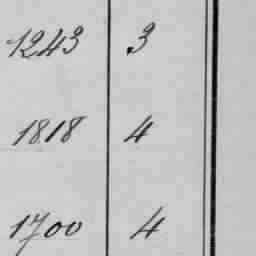 1243 3
1818 4
1700 4